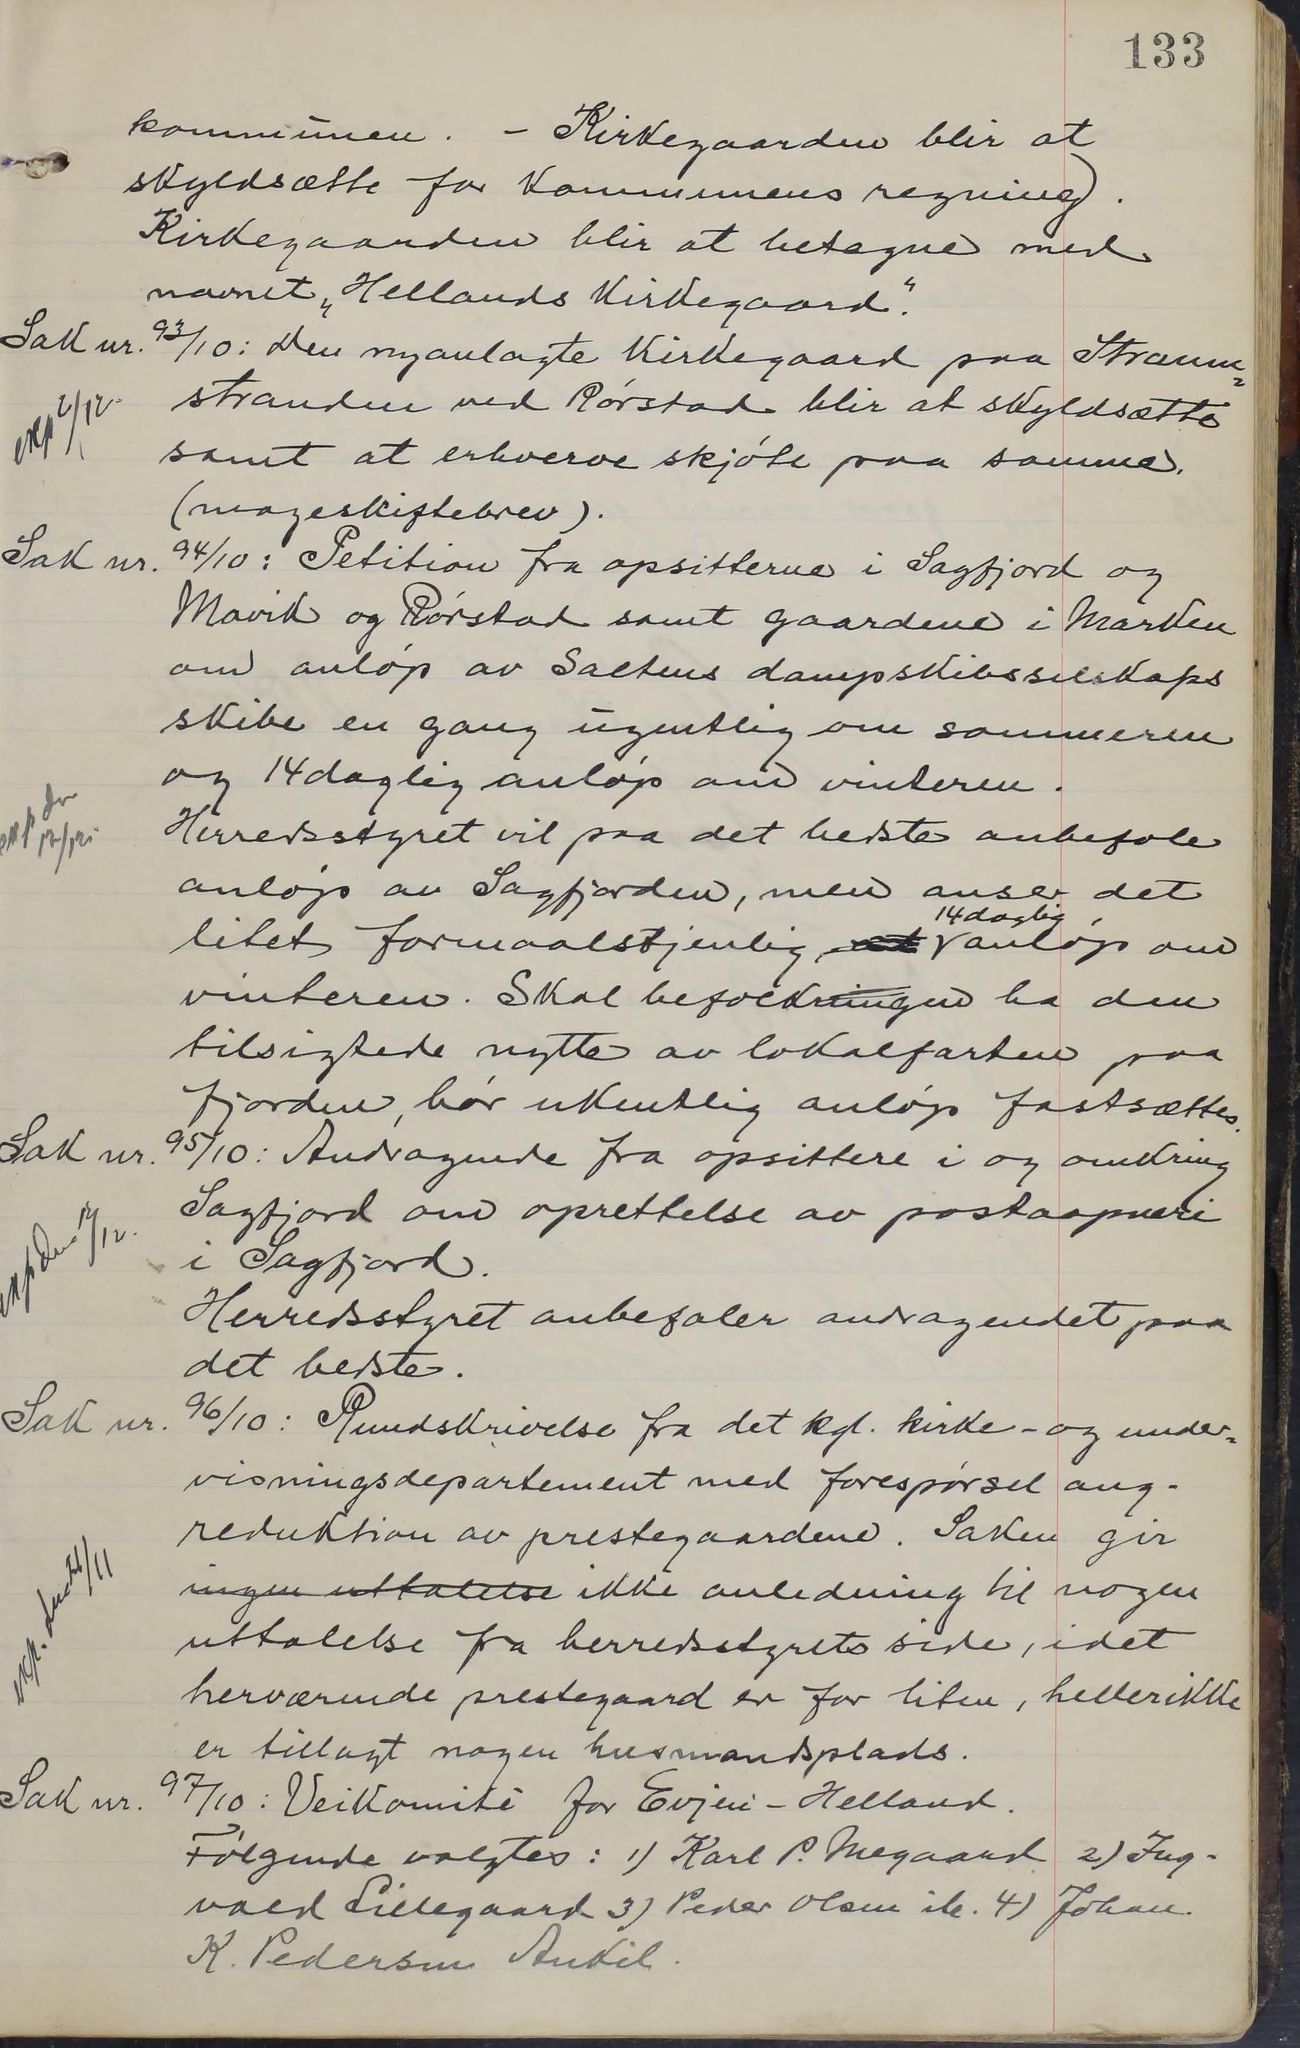 133
kommunen. - Kirkegaarden blir at
skyldsætte for kommunens regning).
Kirkegaarden blir at betegne med
navnet „Hellands Kirkegaard".
Sak nr. 93/10: Den nyanlagte Kirkegaard paa Straum=
exp 2/12.
stranden ved Rørstad blir at skyldsætte
samt at erhverve skjøte paa samme.
(mageskiftebrev).
Sak nr. 94/10: Petition fra opsitterne i Sagfjord og
Mavik og Rørstad samt gaardene i Marken
om anløp av Saltens dampskibsselskaps
skibe en gang ugentlig om sommeren
og 14daglig anløp om vinteren.
exp den 12/12.
Herredsstyret vil paa det bedste anbefale
anløp av Sagfjorden, men anser det
litet formaalstjenlig, at 14daglig anløp om
vinteren. Skal befolkningen ha den
tilsigtede nytte av lokalfarten paa
fjorden, bør ukentlig anløp fastsættes.
Sak nr. 95/10: Andragende fra opsittere i og omkring
Sagfjord om oprettelse av postaapneri
exp den 12/12.
i Sagfjord.
Herredsstyret anbefaler andragendet paa
det bedste.
Sak nr. 96/10: Rundskrivelse fra det kgl. kirke- og under=
visningsdepartement med forespørsel ang.
reduktion av prestegaardene. Saken gir
exp. den /11
ingen uttalelse ikke anledning til nogen
uttalelse fra herredsstyrets side, idet
herværende prestegaard er for liten, hellerikke
er tillagt nogen husmandsplads.
Sak nr. 97/10: Veikomité for Evjen - Helland.
Følgende valgtes: 1) Karl P. Megaard 2) Ing-
vald Lillegaard 3) Peder Olsen ib. 4) Johan
K. Pedersen Ankil.